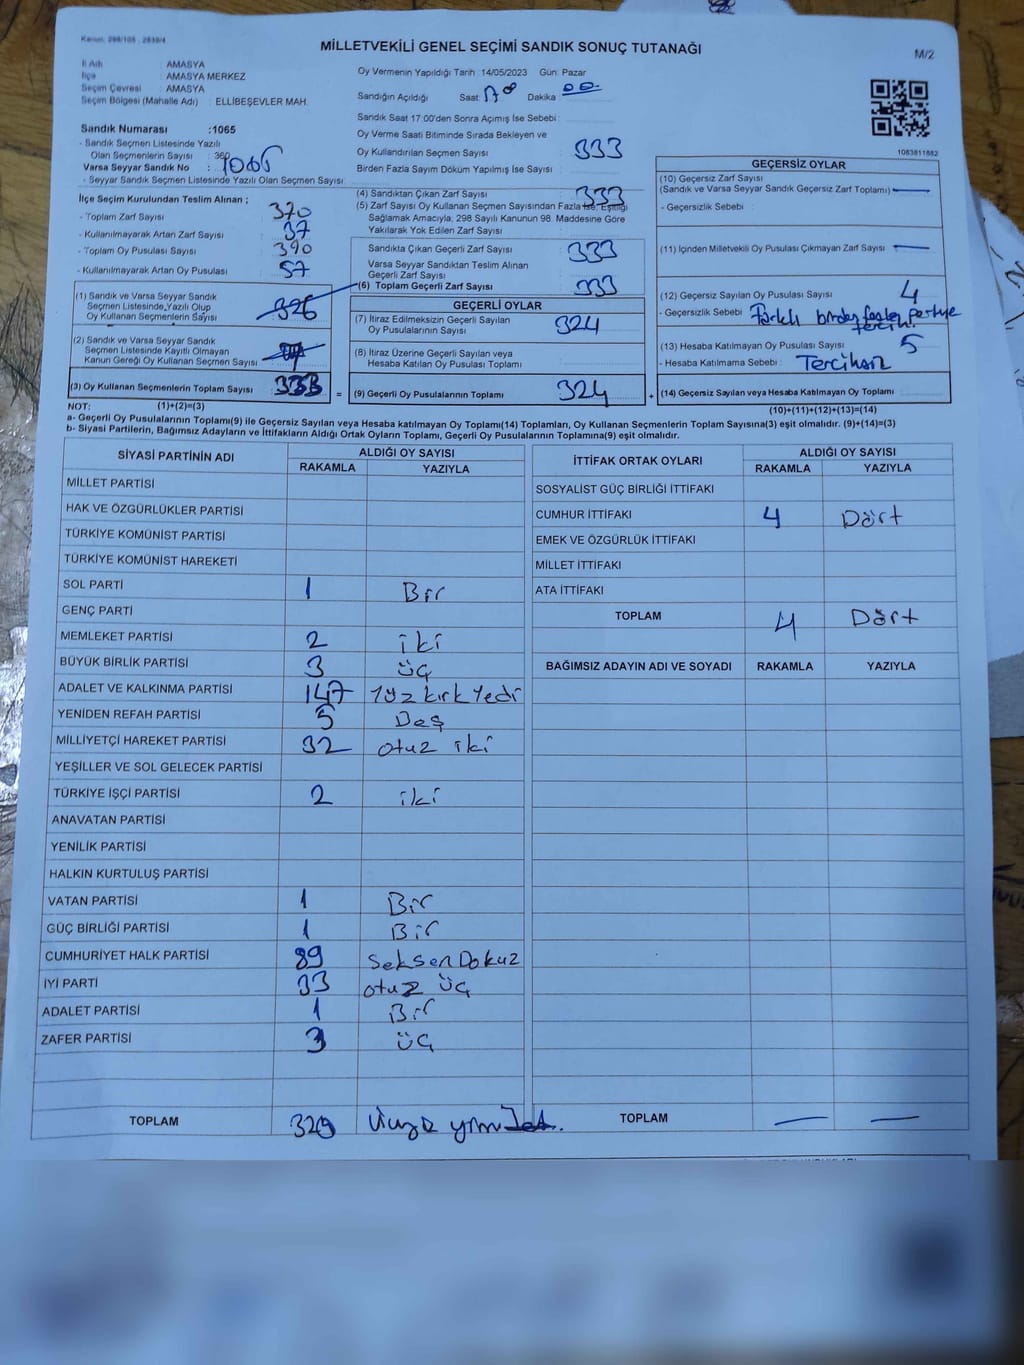 Kanun: 298/105 , 2839/4
MİLLETVEKİLİ GENEL SEÇİMİ SANDIK SONUÇ TUTANAĞI
M/2
İl Adı : AMASYA
İlçe : AMASYA MERKEZ
Seçim Çevresi : AMASYA
Seçim Bölgesi (Mahalle Adı) : ELLİBEŞEVLER MAH.
Sandık Numarası :1065
- Sandık Seçmen Listesinde Yazılı
Olan Seçmenlerin Sayısı :
Varsa Seyyar Sandık No :
- Seyyar Sandık Seçmen Listesinde Yazılı Olan Seçmen Sayısı:
İlçe Seçim Kurulundan Teslim Alınan ;
- Toplam Zarf Sayısı : 370
- Kullanılmayarak Artan Zarf Sayısı : 37
- Toplam Oy Pusulası Sayısı : 390
- Kullanılmayarak Artan Oy Pusulası : 57
(1) Sandık ve Varsa Seyyar Sandık
Seçmen Listesinde Yazılı Olup
Oy Kullanan Seçmenlerin Sayısı 326
(2) Sandık ve Varsa Seyyar Sandık
Seçmen Listesinde Kayıtlı Olmayan
Kanun Gereği Oy Kullanan Seçmen Sayısı
(3) Oy Kullanan Seçmenlerin Toplam Sayısı 333
Oy Vermenin Yapıldığı Tarih :14/05/2023 Gün: Pazar
Sandığın Açıldığı Saat: Dakika : 00
Sandık Saat 17.00'den Sonra Açımış İse Sebebi :
Oy Verme Saati Bitiminde Sırada Bekleyen ve
Oy Kullandırılan Seçmen Sayısı : 333
Birden Fazla Sayım Döküm Yapılmış İse Sayısı :
(4) Sandıktan Çıkan Zarf Sayısı : 333
(5) Zarf Sayısı Oy Kullanan Seçmen Sayısından Fazla İse, Eşitliği
Sağlamak Amacıyla, 298 Sayılı Kanunun 98. Maddesine Göre
Yakılarak Yok Edilen Zarf Sayısı :
Sandıkta Çıkan Geçerli Zarf Sayısı : 333
Varsa Seyyar Sandıktan Teslim Alınan
Geçerli Zarf Sayısı :
(6) Toplam Geçerli Zarf Sayısı : 333
GEÇERLİ OYLAR
(7) İtiraz Edilmeksizin Geçerli Sayılan
Oy Pusulalarının Sayısı : 324
(8) İtiraz Üzerine Geçerli Sayılan veya
Hesaba Katılan Oy Pusulası Toplamı :
= (9) Geçerli Oy Pusulalarının Toplamı : 324
1083811882
GEÇERSİZ OYLAR
(10) Geçersiz Zarf Sayısı
(Sandık ve Varsa Seyyar Sandık Geçersiz Zarf Toplamı) :
- Geçersizlik Sebebi :
(11) İçinden Milletvekili Oy Pusulası Çıkmayan Zarf Sayısı :
(12) Geçersiz Sayılan Oy Pusulası Sayısı : 4
- Geçersizlik Sebebi : Farklı birden fazla partiye
tercih.
(13) Hesaba Katılmayan Oy Pusulası Sayısı : 5
- Hesaba Katılmama Sebebi : Tercihsiz
+ (14) Geçersiz Sayılan veya Hesaba Katılmayan Oy Toplamı :
NOT: (1)+(2)=(3)
(10)+(11)+(12)+(13)=(14)
a- Geçerli Oy Pusulalarının Toplamı(9) ile Geçersiz Sayılan veya Hesaba katılmayan Oy Toplamı(14) Toplamları, Oy Kullanan Seçmenlerin Toplam Sayısına(3) eşit olmalıdır. (9)+(14)=(3)
b- Siyasi Partilerin, Bağımsız Adayların ve İttifakların Aldığı Ortak Oyların Toplamı, Geçerli Oy Pusulalarının Toplamına(9) eşit olmalıdır.
SİYASİ PARTİNİN ADI ALDIĞI OY SAYISI
RAKAMLA YAZIYLA
MİLLET PARTİSİ
HAK VE ÖZGÜRLÜKLER PARTİSİ
TÜRKİYE KOMÜNİST PARTİSİ
TÜRKİYE KOMÜNİST HAREKETİ
SOL PARTİ 1 Bir
GENÇ PARTİ
MEMLEKET PARTİSİ 2 iki
BÜYÜK BİRLİK PARTİSİ 3 üç
ADALET VE KALKINMA PARTİSİ 147 Yüz kırk Yedi
YENİDEN REFAH PARTİSİ 5 Beş
MİLLİYETÇİ HAREKET PARTİSİ 32 otuz iki
YEŞİLLER VE SOL GELECEK PARTİSİ
TÜRKİYE İŞÇİ PARTİSİ 2 iki
ANAVATAN PARTİSİ
YENİLİK PARTİSİ
HALKIN KURTULUŞ PARTİSİ
VATAN PARTİSİ 1 Bir
GÜÇ BİRLİĞİ PARTİSİ 1 Bir
CUMHURİYET HALK PARTİSİ 89 Seksen Dokuz
İYİ PARTİ 33 otuz üç
ADALET PARTİSİ 1 Bir
ZAFER PARTİSİ 3 üç
TOPLAM
İTTİFAK ORTAK OYLARI ALDIĞI OY SAYISI
RAKAMLA YAZIYLA
SOSYALİST GÜÇ BİRLİĞİ İTTİFAKI
CUMHUR İTTİFAKI 4 Dört
EMEK VE ÖZGÜRLÜK İTTİFAKI
MİLLET İTTİFAKI
ATA İTTİFAKI
TOPLAM 4 Dört
BAĞIMSIZ ADAYIN ADI VE SOYADI RAKAMLA YAZIYLA
TOPLAM